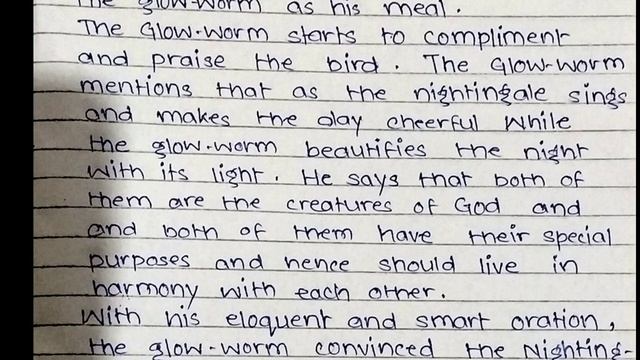 The glow-worm as his meal.
The Glow-worm starts to compliment
and praise the bird. The Glow-worm
mentions that as the nightingale sings
and makes the day cheerful while
the glow-worm beautifies the night
with its light. He says that both of
them are the creatures of God and
and both of them have their special
purposes and hence should live in
harmony with each other.
With his eloquent and smart oration,
the glow-worm convinced the Nighting-